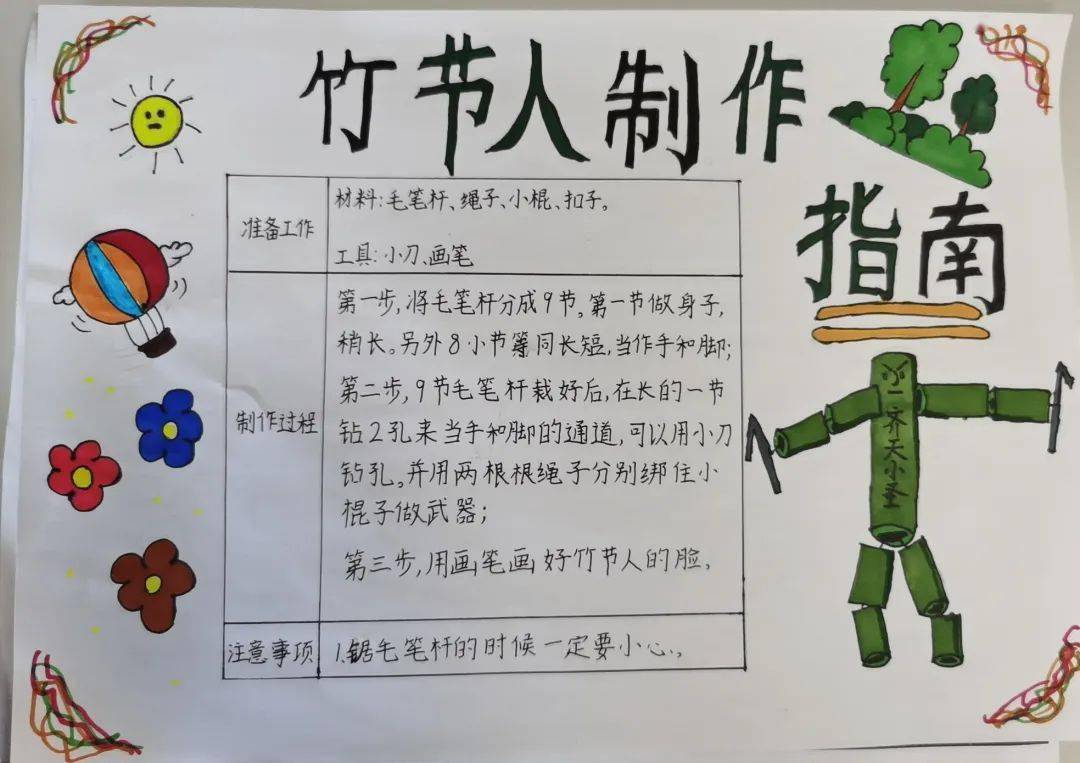 竹节人制作
指南
准备工作
材料:毛笔杆、绳子、小棍、扣子。
工具:小刀、画笔
制作过程
第一步,将毛笔杆分成9节。第一节做身子,
稍长。另外8小节等同长短,当作手和脚;
第二步,9节毛笔杆栽好后,在长的一节
钻2孔来当手和脚的通道,可以用小刀
钻孔。并用两根根绳子分别绑住小
棍子做武器;
第三步,用画笔画好竹节人的脸。
注意事项
1.锯毛笔杆的时候一定要小心。
齐天小圣